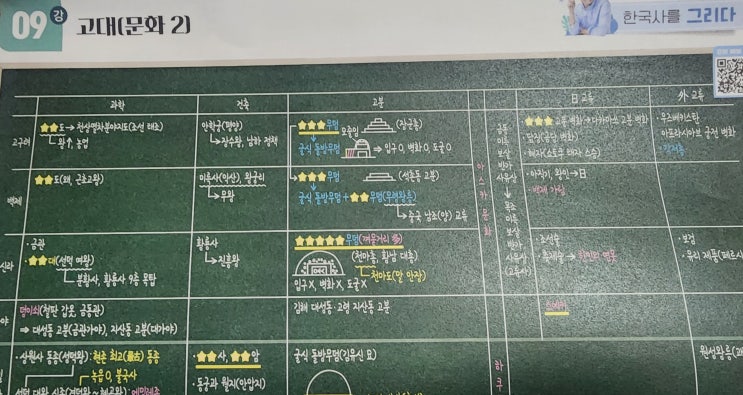 09강 고대(문화 2)
한국사를 그리다
과학 건축 고분 日 교류 外 교류
고구려
★★도 → 천상열차분야지도(조선 태조)
왕호, 농업
안학궁(평양)
→ 장수왕, 남하 정책
★★★무덤 (장군총)
모줄임
굴식 돌방무덤 ⇒ 입구 O, 벽화 O, 도굴 O
★★★ 고분 벽화 → 다카마쓰 고분 벽화
담징(금당 벽화)
혜자(쇼토쿠 태자 스승)
우즈베키스탄
아프라시아브 궁전 벽화
백제
★★도(왜, 근초고왕)
미륵사(익산), 왕궁리
→ 무왕
★★★무덤 (석촌동 고분)
굴식 돌방무덤 + ★★무덤(무령왕릉)
→ 중국 남조(양) 교류
아직기, 왕인 → 日
백제 가람
아스카 문화
신라
· 금관
· ★★대(선덕 여왕)
분황사, 황룡사 9층 목탑
황룡사
→ 진흥왕
★★★★★무덤(껴묻거리 多)
(천마총, 황남 대총)
천마도(말 안장)
입구 X, 벽화 X, 도굴 X
· 조선술
· 축제술 → 한인의 연못
· 보검
· 유리 제품(페르시
야
덩이쇠(철판 갑옷, 금동관)
⇒ 대성동 고분(금관가야), 지산동 고분(대가야)
김해 대성동·고령 지산동 고분
스에키
· 상원사 동종(성덕왕): 현존 최고(最古) 동종
녹음 O, 불국사
성덕 대왕 신종(경덕왕 ~ 혜공왕) 에밀레종
· ★★사, ★★암
· 동궁과 월지(안압지)
굴식 돌방무덤(김유신 묘)
하쿠
원성왕릉(괘